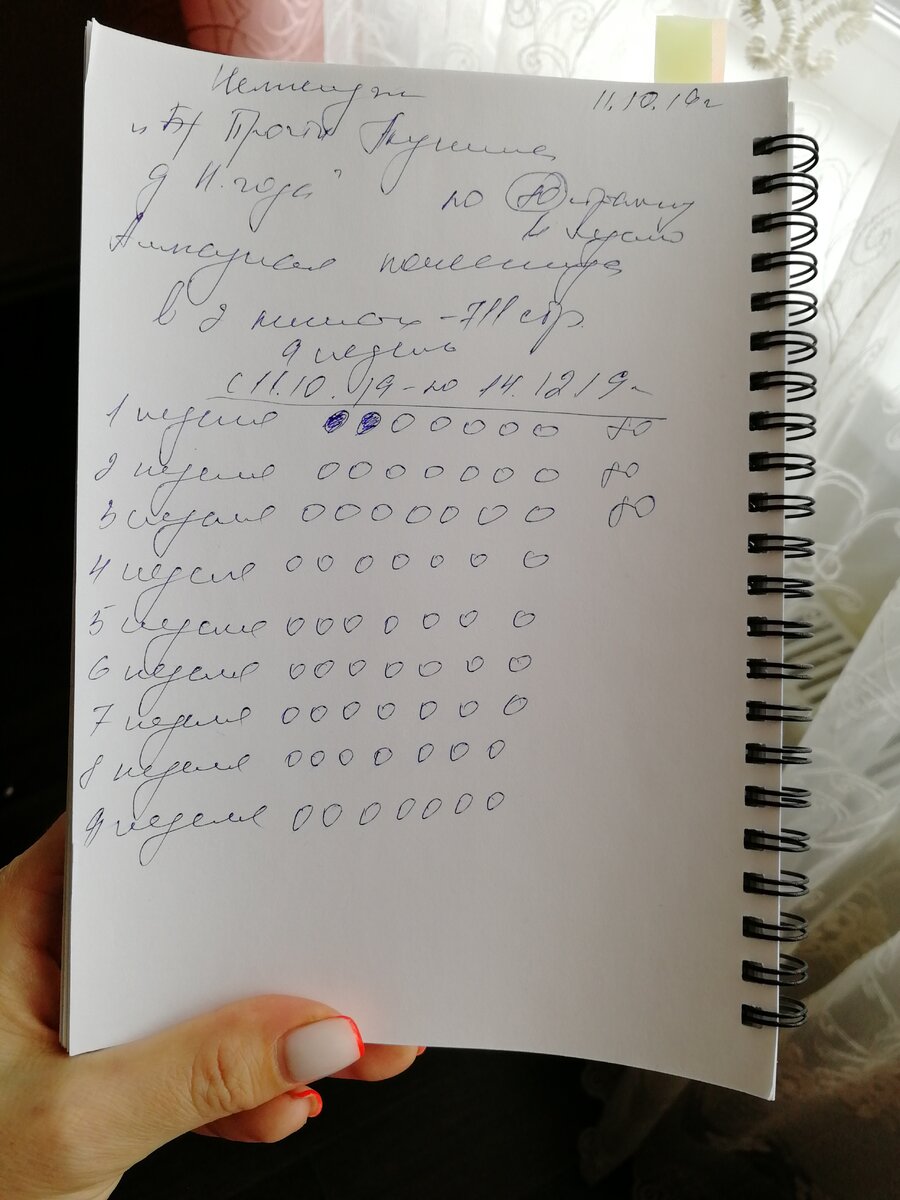 Челлендж 11.10.19г
Прочти Акунина
д Н. года" по 80 страниц
в неделю
Алмазная колесница
в 2 книгах - 711 стр.
9 недель
с 11.10.19 - по 14.12 19г
1 неделя 80
2 неделя 80
3 неделя 80
4 неделя
5 неделя
6 неделя
7 неделя
8 неделя
9 неделя